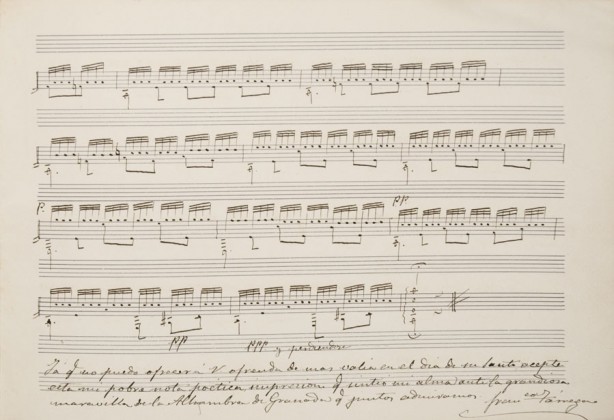 p.
pp
pp
ppp y perdiendose
Ya q. no puedo ofrecer á V. ofrenda de mas valia en el dia de su santo acepte
esta mi pobre nota poética impresion q. sintió mi alma ante la grandiosa
maravilla de la Alhambra de Granada q. juntos admiramos. Fran.co Tárrega